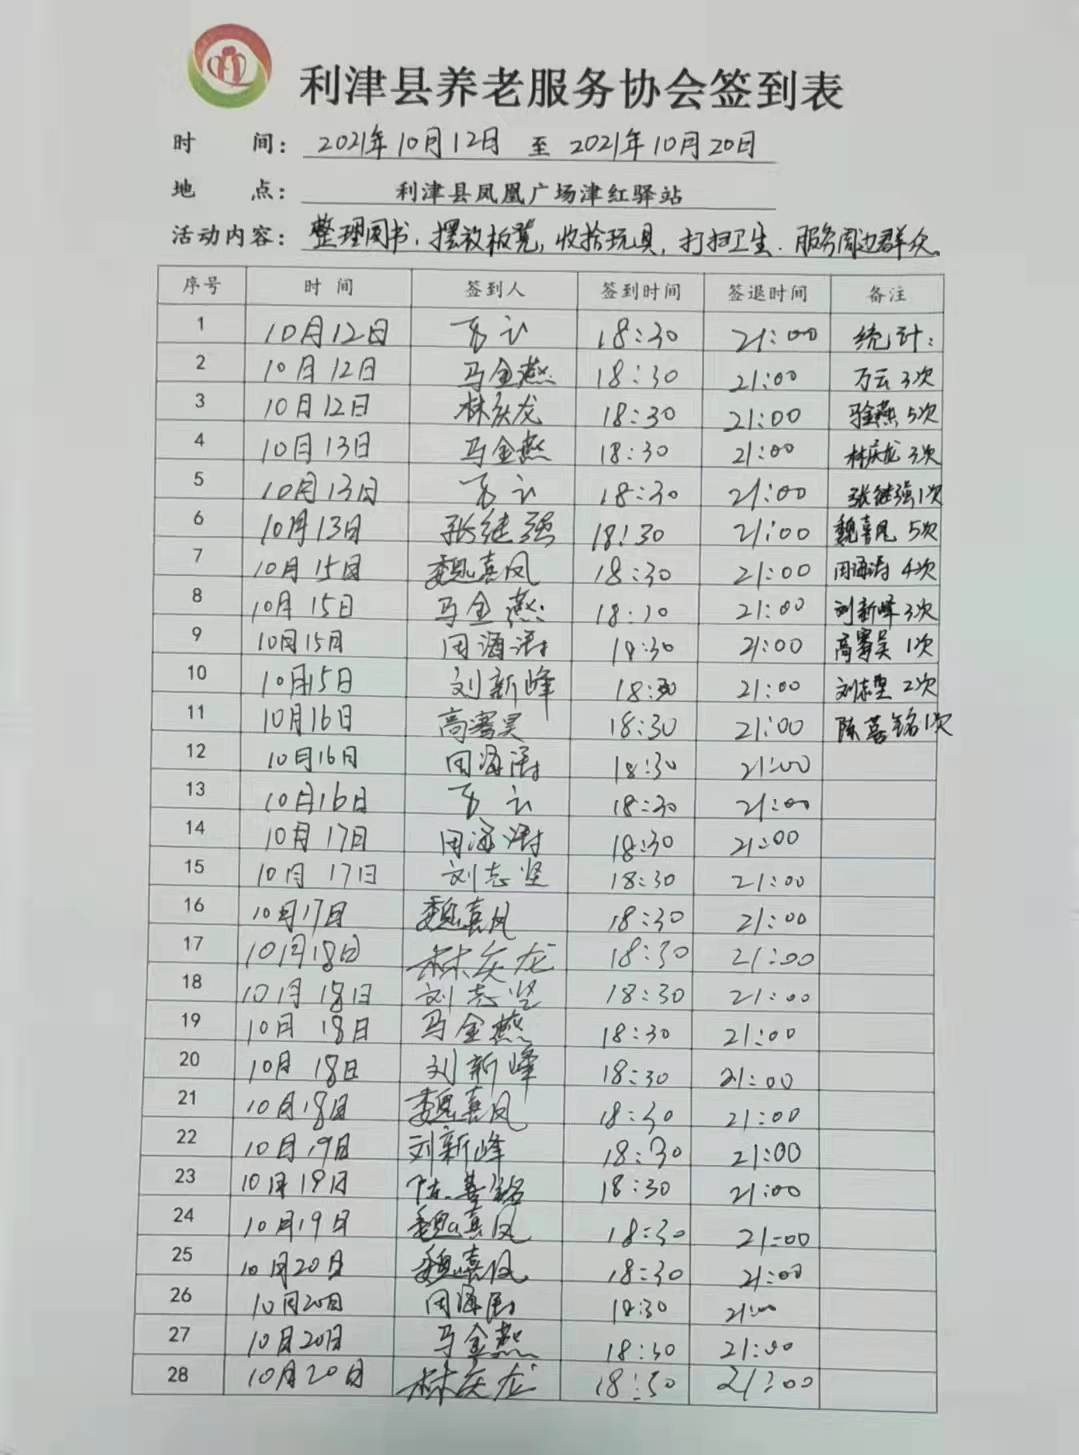 利津县养老服务协会签到表
时 间: 2021年10月12日 至 2021年10月20日
地 点: 利津县凤凰广场津红驿站
活动内容: 整理图书,摆放板凳,收拾玩具,打扫卫生.服务周边群众.
序号 时间 签到人 签到时间 签退时间 备注
1 10月12日 万云 18:30 21:00 统计:
2 10月12日 马金燕 18:30 21:00 万云 3次
3 10月12日 林庆龙 18:30 21:00 马金燕 5次
4 10月13日 马金燕 18:30 21:00 林庆龙 3次
5 10月13日 万云 18:30 21:00 张继强 1次
6 10月13日 张继强 18:30 21:00 魏喜凤 5次
7 10月15日 魏喜凤 18:30 21:00 周海涛 4次
8 10月15日 马金燕 18:30 21:00 刘新峰 3次
9 10月15日 周海涛 18:30 21:00 高骞昊 1次
10 10月15日 刘新峰 18:30 21:00 刘志坚 2次
11 10月16日 高骞昊 18:30 21:00 陈 铭 1次
12 10月16日 周海涛 18:30 21:00
13 10月16日 万云 18:30 21:00
14 10月17日 周海涛 18:30 21:00
15 10月17日 刘志坚 18:30 21:00
16 10月17日 魏喜凤 18:30 21:00
17 10月18日 林庆龙 18:30 21:00
18 10月18日 刘志坚 18:30 21:00
19 10月18日 马金燕 18:30 21:00
20 10月18日 刘新峰 18:30 21:00
21 10月18日 魏喜凤 18:30 21:00
22 10月19日 刘新峰 18:30 21:00
23 10月19日 陈 铭 18:30 21:00
24 10月19日 魏喜凤 18:30 21:00
25 10月20日 魏喜凤 18:30 21:00
26 10月20日 周海涛 18:30 21:00
27 10月20日 马金燕 18:30 21:00
28 10月20日 林庆龙 18:30 21:00